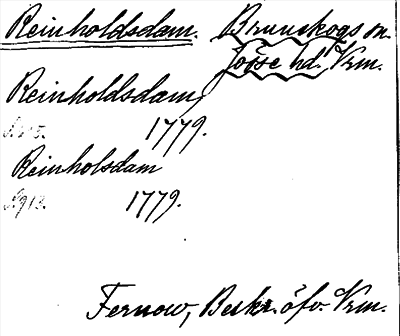 Reinholdsdam. Brunskogs sn.
Jösse hd. Vrm.
Reinholdsdam,
1779.
Reinholsdam
1779.
Fernow, Beskr. öfv. Vrm.